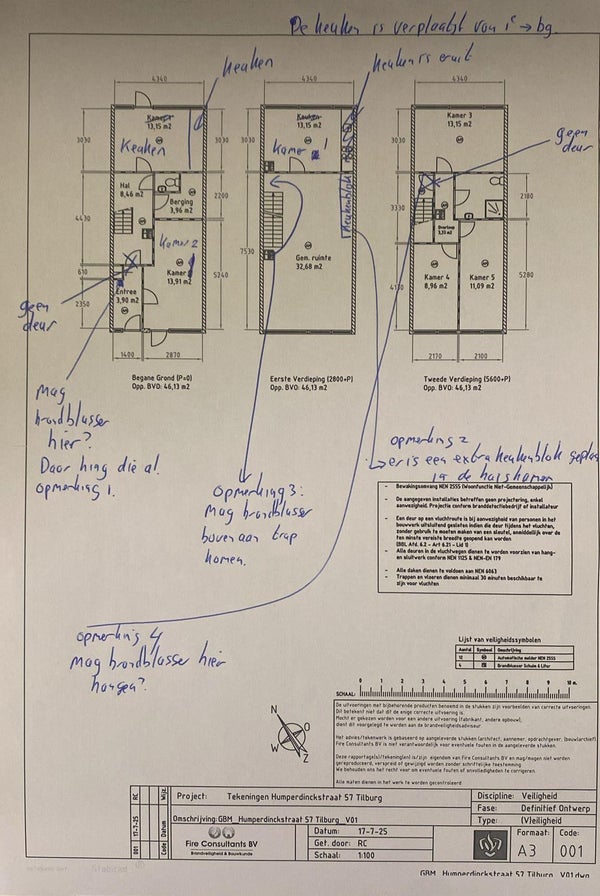 De keuken is verplaatst van 1e → bg.
keuken
keuken is eruit
4340
4340
4340
Kamer
13,15 m2
Keuken
Keuken
13,15 m2
Kamer 1
Kamer 3
13,15 m2
geen
deur
3030
3030
3030
3030
Hal
8,46 m2
Berging
3,96 m2
2200
4430
Keukenblok
7530
Gem. ruimte
32,68 m2
3330
2180
Overloop
3,33 m2
Kamer 2
Kamer
13,91 m2
5240
610
Entree
3,90 m2
2350
geen
deur
Kamer 4
8,96 m2
Kamer 5
11,09 m2
5280
1400
2870
2170
2100
Begane Grond (P=0)
Opp. BVO: 46,13 m2
Eerste Verdieping (2800+P)
Opp. BVO: 46,13 m2
Tweede Verdieping (5600+P)
Opp. BVO: 46,13 m2
Mag
brandblusser
hier?
Daar hing die al.
opmerking 1.
opmerking 2
er is een extra keukenblok geplaa
in de huiskamer
Opmerking 3:
Mag brandblusser
boven aan trap
komen.
opmerking 4
Mag brandblusser hier
hangen?
- Bewakingsomvang NEN 2555 (Woonfunctie Niet-Gemeenschappelijk)
- De aangegeven installaties betreffen geen projectering, enkel
aanwezigheid. Projectie conform branddetectiebedrijf of installateur
- Een deur op een vluchtroute is bij aanwezigheid van personen in het
bouwwerk uitsluitend gesloten indien die deur tijdens het vluchten,
zonder gebruik te moeten maken van een sleutel, onmiddellijk over de
ten minste vereiste breedte geopend kan worden
(BBL Afd. 6.2 - Art 6.21 - Lid 1)
- Alle deuren in de vluchtwegen dienen te worden voorzien van hang-
en sluitwerk conform NEN 1125 & NEN-EN 179
- Alle daken dienen te voldoen aan NEN 6063
- Trappen en vloeren dienen minimaal 30 minuten beschikbaar te
zijn voor vluchten
Lijst van veiligheidssymbolen
Aantal Symbool Omschrijving
12 Automatische melder NEN 2555
4 Brandblusser Schuim 6 Liter
0 1 2 3 4 5 6 7 8 9 10 m.
SCHAAL:
De uitvoeringen met bijbehorende producten benoemd in de stukken zijn voorbeelden van correcte uitvoeringen.
Dit betekent niet dat dit de enige correcte uitvoering is.
Mocht er gekozen worden voor een andere uitvoering (fabrikant, andere opbouw),
dient dit voorgelegd te worden aan de brandveiligheidsadviseur.
Het advies/tekenwerk is gebaseerd op aangeleverde stukken (architect, aannemer, opdrachtgever, (bouw)archief).
Fire Consultants BV is niet verantwoordelijk voor eventuele fouten in de aangeleverde stukken.
Deze rapportage(s)/tekening(en) is/zijn eigendom van Fire Consultants BV en mag/mogen niet worden
gereproduceerd, verspreid of gewijzigd worden zonder schriftelijke toestemming.
We behouden ons het recht voor om eventuele fouten of onvolledigheden te corrigeren.
Alle maten dienen in het werk te worden gecontroleerd.
N
O
W
Z
Project: Tekeningen Humperdinckstraat 57 Tilburg
Discipline: Veiligheid
Fase: Definitief Ontwerp
Omschrijving:GBM_Humperdinckstraat 57 Tilburg_V01
Type: (V)eiligheid
Fire Consultants BV
Brandveiligheid & Bouwkunde
Datum: 17-7-25
Get. door: RC
Schaal: 1:100
Formaat: A3
Code: 001
001 17-7-25 RC
Code Datum Wijz.
GBM_Humperdinckstraat 57 Tilburg V01.dwg